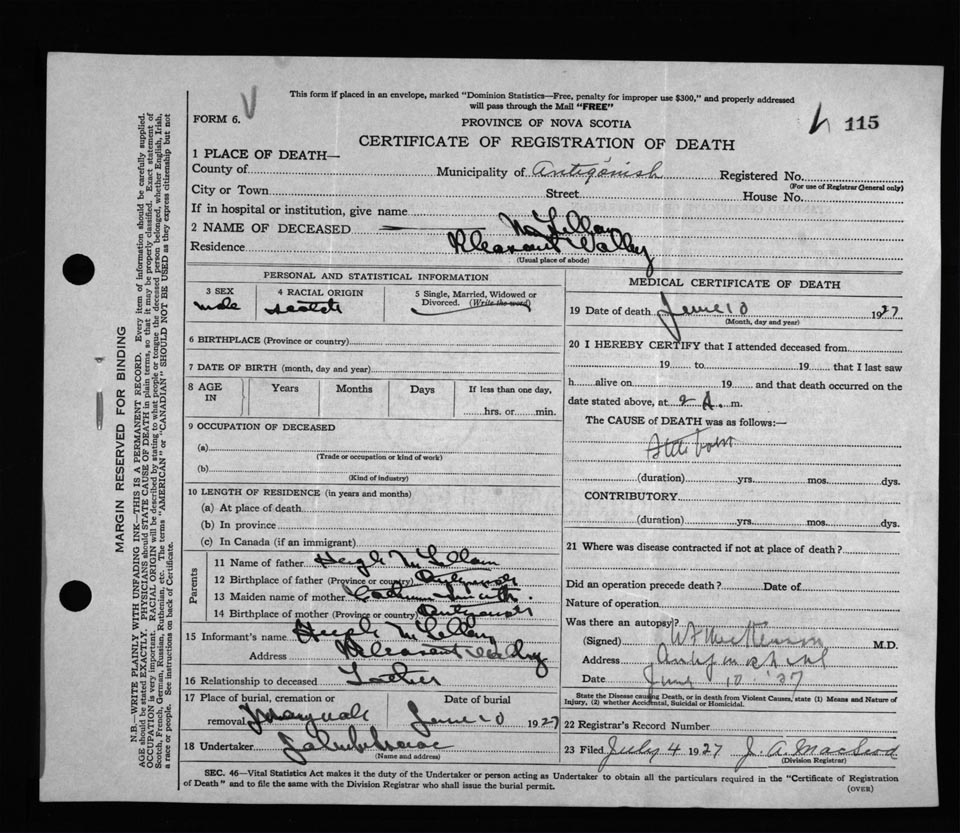 This form if placed in an envelope, marked "Dominion Statistics—Free, penalty for improper use $300," and properly addressed
will pass through the Mail "FREE"
FORM 6.
PROVINCE OF NOVA SCOTIA
115
CERTIFICATE OF REGISTRATION OF DEATH
1 PLACE OF DEATH—
County of Municipality of Antigonish Registered No.
(For use of Registrar General only)
City or Town Street House No.
If in hospital or institution, give name
2 NAME OF DECEASED
Residence Pleasant Valley
(Usual place of abode)
PERSONAL AND STATISTICAL INFORMATION
3 SEX 4 RACIAL ORIGIN 5 Single, Married, Widowed or
Divorced. (Write the word)
male Scotch
6 BIRTHPLACE (Province or country)
7 DATE OF BIRTH (month, day and year)
8 AGE IN Years Months Days If less than one day,
hrs. or min.
9 OCCUPATION OF DECEASED
(a)
(Trade or occupation or kind of work)
(b)
(Kind of industry)
10 LENGTH OF RESIDENCE (in years and months)
(a) At place of death
(b) In province
(c) In Canada (if an immigrant)
Parents
11 Name of father Hugh
12 Birthplace of father (Province or country)
13 Maiden name of mother
14 Birthplace of mother (Province or country)
15 Informant's name Hugh
Address Pleasant Valley
16 Relationship to deceased Father
17 Place of burial, cremation or Date of burial
removal June 10 1927
18 Undertaker
(Name and address)
MEDICAL CERTIFICATE OF DEATH
19 Date of death June 10 1927
(Month, day and year)
20 I HEREBY CERTIFY that I attended deceased from
19 to 19 that I last saw
h alive on 19 and that death occurred on
date stated above, at 2 A. m.
The CAUSE of DEATH was as follows:—
(duration) yrs. mos. dys.
CONTRIBUTORY
(duration) yrs. mos. dys.
21 Where was disease contracted if not at place of death?
Did an operation precede death? Date of
Nature of operation
Was there an autopsy?
(Signed) M.D.
Address
Date June 10 '27
State the Disease causing Death, or in death from Violent Causes, state (1) Means and Nature of
Injury, (2) whether Accidental, Suicidal or Homicidal.
22 Registrar's Record Number
23 Filed July 4 1927 J. A. MacLeod
(Division Registrar)
SEC. 46—Vital Statistics Act makes it the duty of the Undertaker or person acting as Undertaker to obtain all the particulars required in the "Certificate of Registration
of Death" and to file the same with the Division Registrar who shall issue the burial permit.
(OVER)
MARGIN RESERVED FOR BINDING
N.B.—WRITE PLAINLY WITH UNFADING INK—THIS IS A PERMANENT RECORD. Every item of information should be carefully supplied.
AGE should be stated EXACTLY. PHYSICIANS should STATE CAUSE OF DEATH in plain terms, so that it may be properly classified. Exact statement of
OCCUPATION is very important. RACIAL ORIGIN will be described by stating to what people or tongue the deceased person belonged, whether English, Irish,
Scotch, French, German, Russian, Ruthenian, etc. The terms "AMERICAN" or "CANADIAN" SHOULD NOT BE USED as they express citizenship but not
a race or people. See instructions on back of Certificate.